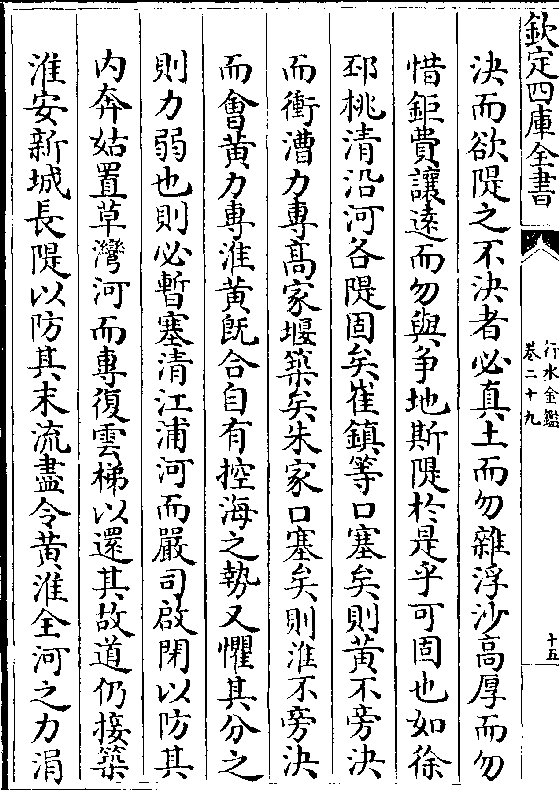 欽定四庫全書
行水金鑑
卷二十九
十五
決而欲隄之不決者必真土而勿雜浮沙高厚而勿
惜鉅費讓逺而勿與争地斯隄於是乎可固也如徐
邳桃清沿河各隄固矣崔鎮等口塞矣則黄不旁決
而衝漕力專髙家堰築矣朱家口塞矣則淮不旁決
而㑹黄力專淮黄既合自有控海之勢又懼其分之
則力弱也則必暫塞清江浦河而嚴司啟閉以防其
内奔姑置草灣河而專復雲梯以還其故道仍接築
淮安新城長隄以防其末流盡令黄淮全河之力涓